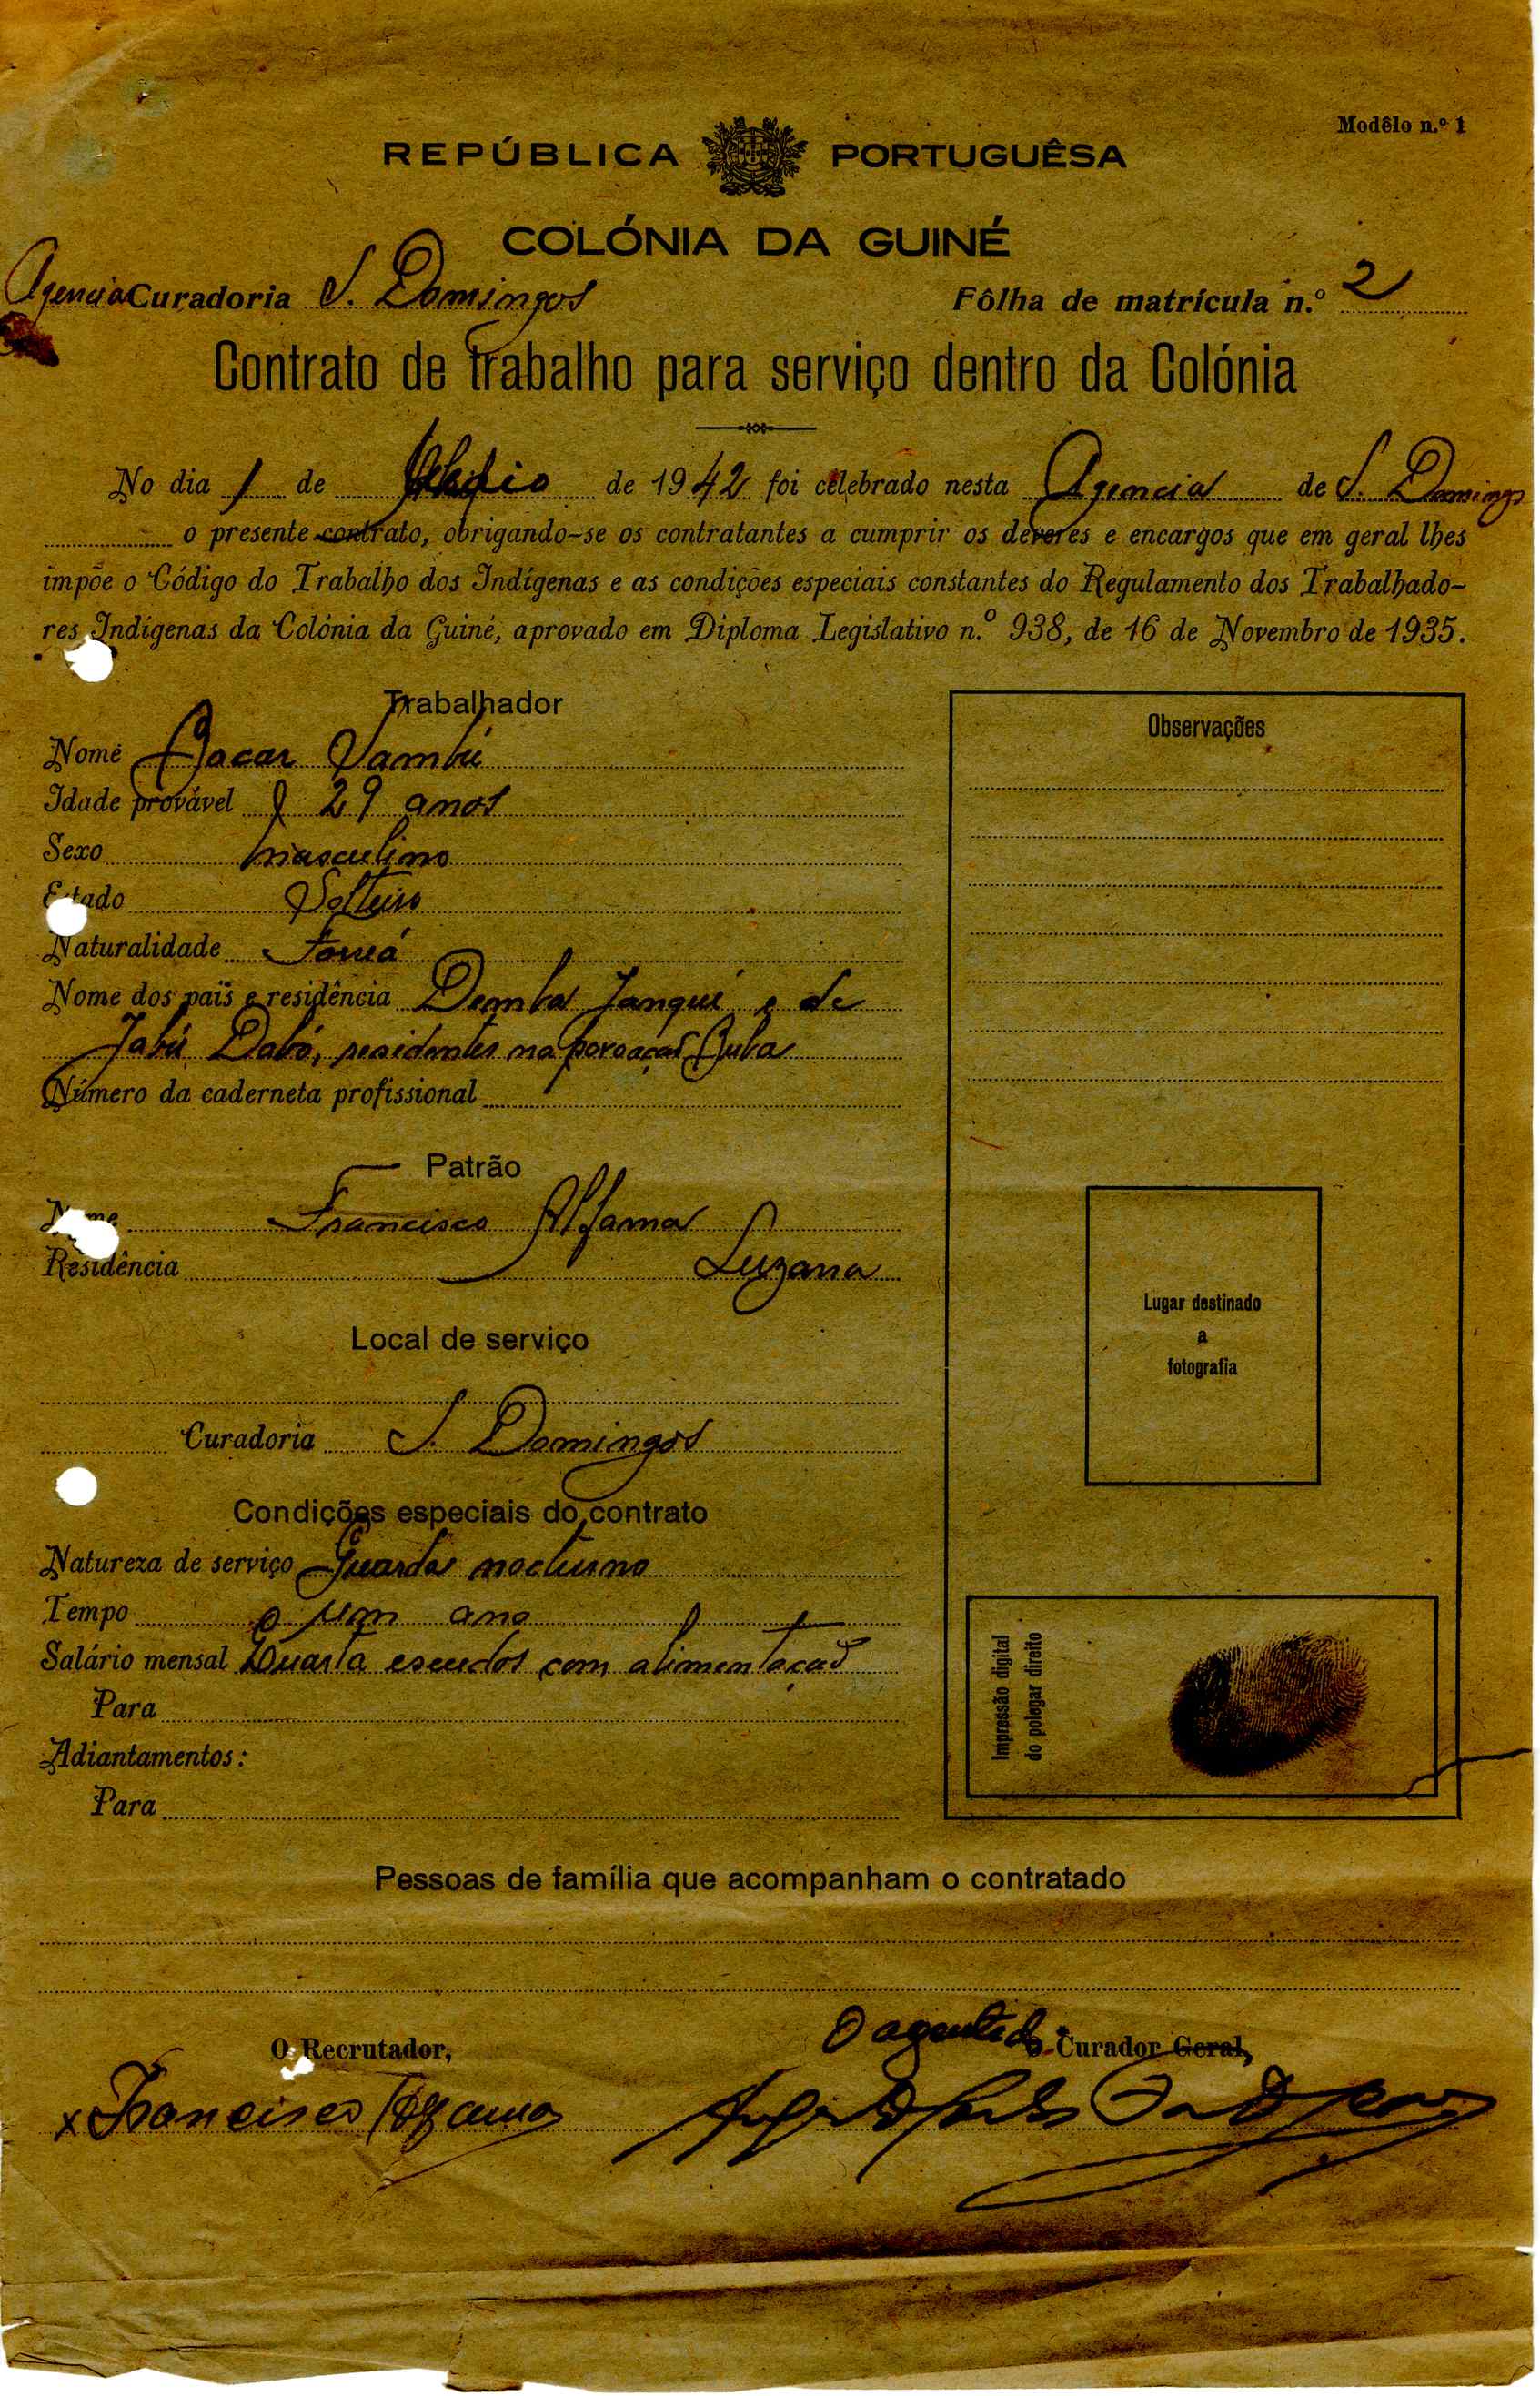 Modêlo n.º 1
REPÚBLICA PORTUGUÊSA
COLÓNIA DA GUINÉ
Agencia Curadoria S. Domingos Fôlha de matrícula n.º 2
Contrato de trabalho para serviço dentro da Colónia
No dia 1 de de 1942 foi celebrado nesta Agencia de S. Domingos
o presente contrato, obrigando-se os contratantes a cumprir os deveres e encargos que em geral lhes
impõe o Código do Trabalho dos Indígenas e as condições especiais constantes do Regulamento dos Trabalhado-
res Indígenas da Colónia da Guiné, aprovado em Diploma Legislativo n.º 938, de 16 de Novembro de 1935.
Trabalhador
Nome Bacar Sambú
Idade provável 29 anos
Sexo masculino
Estado Solteiro
Naturalidade
Nome dos pais e residência Demba Janqui e de
Jabú Dabó, residentes na povoação Buba
Número da caderneta profissional
Patrão
Nome Francisco Alfama
Residência Luzana
Local de serviço
Curadoria S. Domingos
Condições especiais do contrato
Natureza de serviço Guarda nocturno
Tempo um ano
Salário mensal escudos com alimentação
Para
Adiantamentos:
Para
Observações
Lugar destinado
a
fotografia
Impressão digital
do polegar direito
Pessoas de família que acompanham o contratado
O Recrutador, O agente do Curador Geral,
x Francisco Alfama